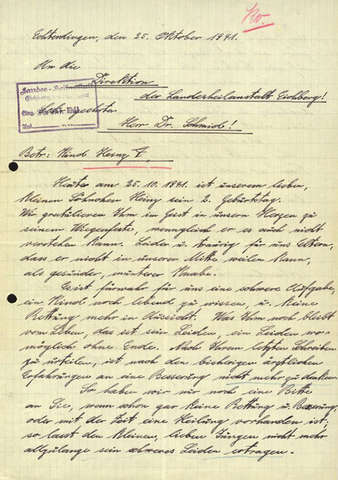 Echterdingen, den 25. Oktober 1941.
An die
Direktion
der Landesheilanstalt Eichberg!
Herr Dr. Schmidt!
Betr: Kind Heinz F.
Heute am 25.10.1941. ist unserem lieben,
kleinen Söhnchen Heinz sein 2. Geburtstag.
Wir gratulieren Ihm im Geist in unsern Herzen zu
seinem Wiegenfeste, wenngleich er es auch nicht
verstehen kann. Leider u. traurig für uns Eltern,
dass er nicht in unserer Mitte weilen kann,
als gesunder, munterer Knabe.
Es ist fürwahr für uns eine schwere Aufgabe,
ein Kind noch lebend zu wissen, u. keine
Rettung mehr in Aussicht. Was Ihm noch bleibt
vom Leben, das ist sein Leiden, ein Leiden wo-
möglich ohne Ende. Nach Ihrem letzten Schreiben
zu urteilen, ist nach den bisherigen ärztlichen
Erfahrungen an eine Besserung nicht mehr zu denken.
So haben wir nur noch eine Bitte
an Sie, wenn schon gar keine Rettung u. Besserung,
oder mit der Zeit eine Heilung vorhanden ist,
so lasst den kleinen, lieben Jungen nicht mehr
allzulange sein schweres Leiden ertragen.